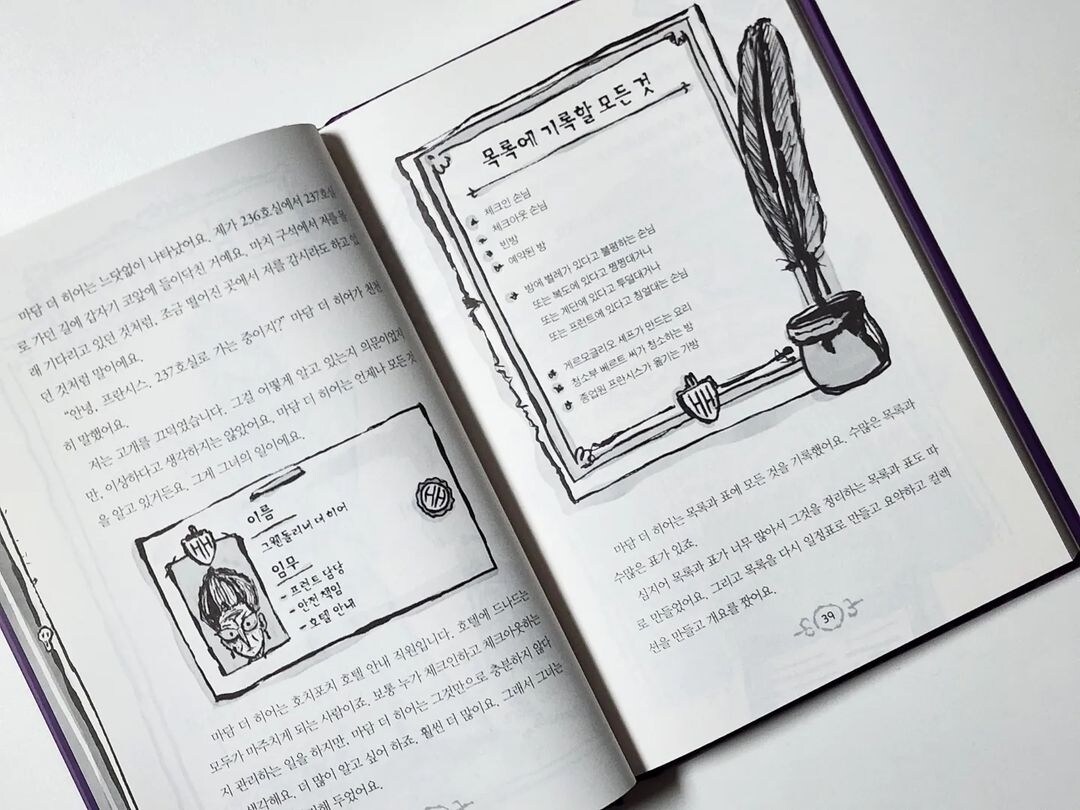 마담 더 히어는 느닷없이 나타났어요. 제가 236호실에서 237호실
로 가던 길에 갑자기 코앞에 들이닥친 거예요. 마치 구석에서 저를 몰
래 기다리고 있던 것처럼, 조금 떨어진 곳에서 저를 감시라도 하고 있
던 것처럼 말이에요.
"안녕, 프란시스. 237호실로 가는 중이지?" 마담 더 히어가 천천
히 말했어요.
저는 고개를 끄덕였습니다. 그걸 어떻게 알고 있는지 의문이었지
만, 이상하다고 생각하지는 않았어요. 마담 더 히어는 언제나 모든 것
을 알고 있거든요. 그게 그녀의 일이에요.
HH
HH
이름
그웬돌리너 더 히어
임무
- 프런트 담당
- 안전 책임
- 호텔 안내
마담 더 히어는 호치포치 호텔 안내 직원입니다. 호텔에 드나드는
모두가 마주치게 되는 사람이죠. 보통 누가 체크인하고 체크아웃하는
지 관리하는 일을 하지만, 마담 더 히어는 그것만으로 충분하지 않다
생각해요. 더 많이 알고 싶어 하죠. 훨씬 더 많이요. 그래서 그녀는
두었어요.
목록에 기록할 모든 것
체크인 손님
체크아웃 손님
빈방
예약된 방
방에 벌레가 있다고 불평하는 손님
또는 복도에 있다고 찡찡대거나
또는 계단에 있다고 투덜대거나
또는 프런트에 있다고 칭얼대는 손님
게르모글리오 셰프가 만드는 요리
청소부 베르트 씨가 청소하는 방
종업원 프란시스가 옮기는 가방
HH
마담 더 히어는 목록과 표에 모든 것을 기록했어요. 수많은 목록과
수많은 표가 있죠.
심지어 목록과 표가 너무 많아서 그것을 정리하는 목록과 표도 따
로 만들었어요. 그리고 목록을 다시 일정표로 만들고 요약하고 컬렉
션을 만들고 개요를 짰어요.
39